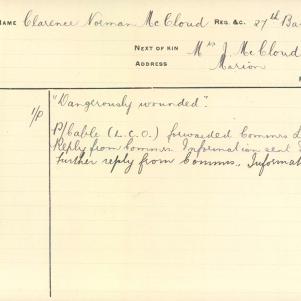 NAME Clarence Norman McCloud REG. &C. 27th Ba
NEXT OF KIN Mrs J. McCloud
ADDRESS Marion
"Dangerously wounded".
P/Cable (L.C.O.) forwarded Commrs
Reply from Commrs. Information sent
Further reply from Commrs. Informat